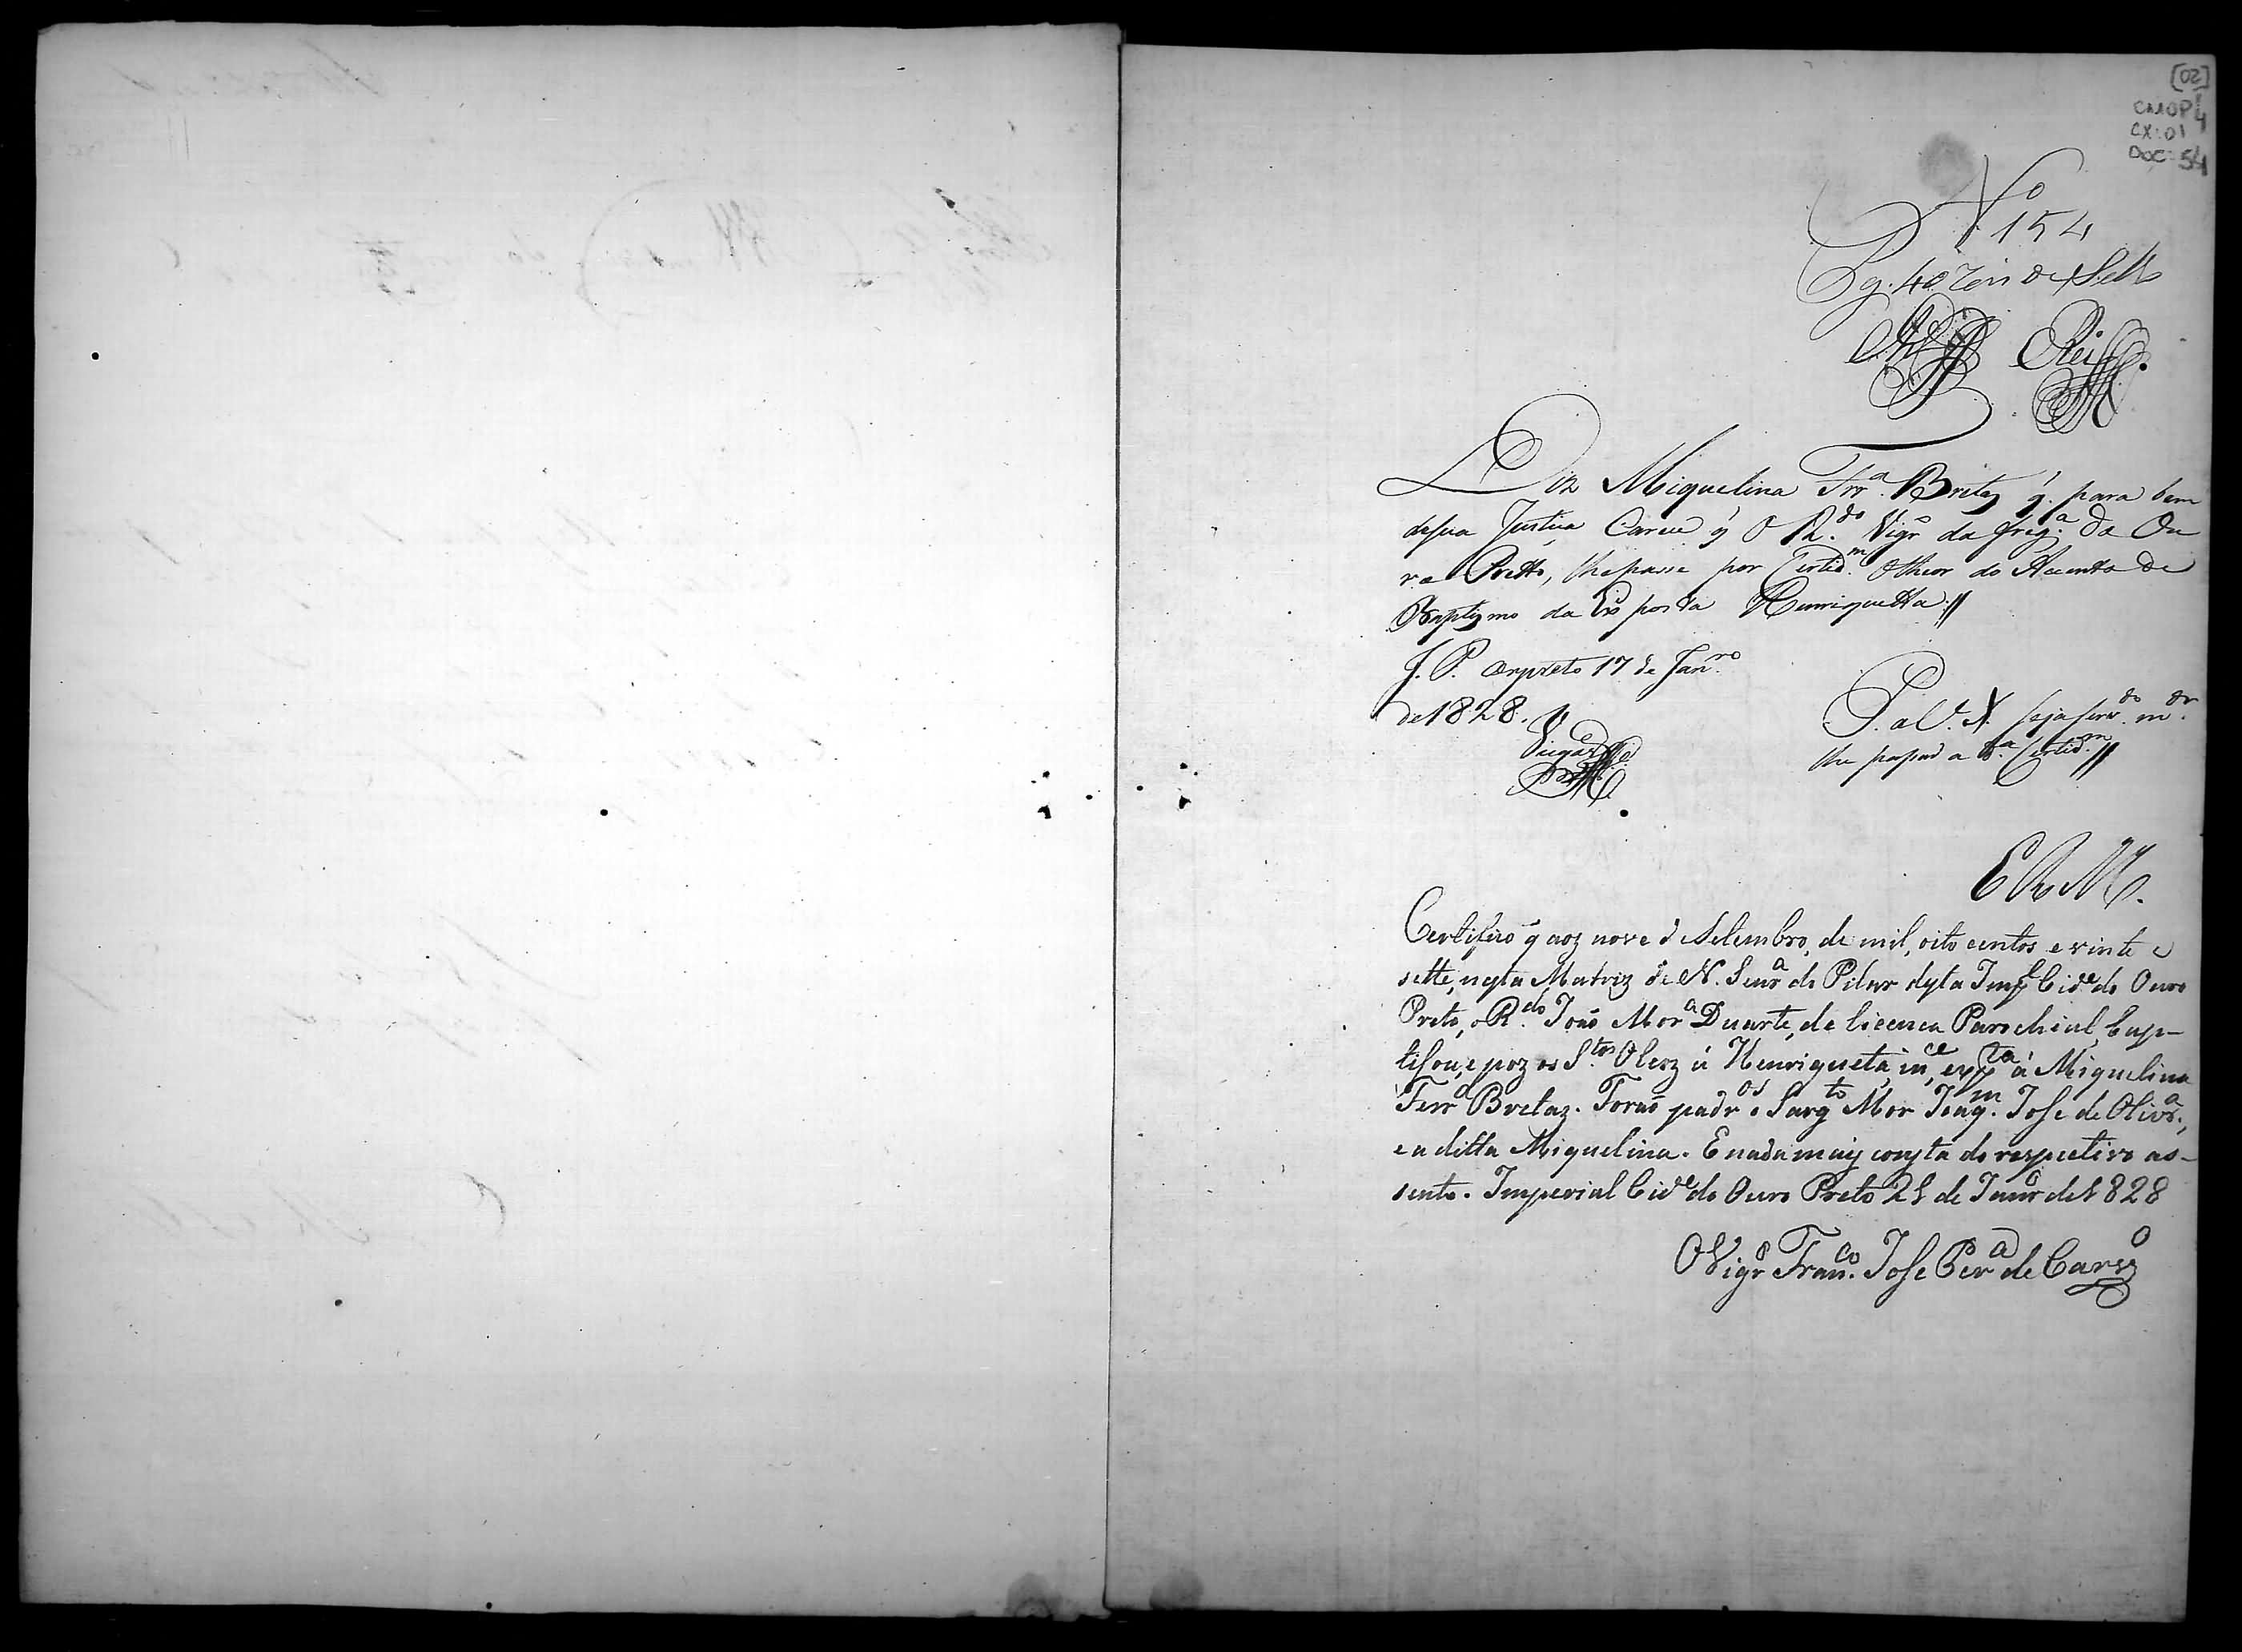 [02]
CMOP
CX: 01
DOC: 54
Nº
154
Pg. 40 reis de Sello
Reis
Diz Miquelina Frrª. Bretaz q̃. para bem
desua Justiça Carece q̃ O R.do Vigrº da freg.ª do Ou
ro Pretto, lhepasse por Certid.m Otheor do Acento de
Baptizmo da Exposta Henriquetta //
J. P. Orpreto 17 de Jan.ro
de 1828.
Veiga
P. a V. S. seja serv.do m.dar
lhe passar a d.ª Certid.m //
E R M.
Certifico q̃ aoz nove d Setembro, de mil, oito centos e vinte e
sette, nesta Matriz de N. Senrª do Pilar desta Impl Cid.e do Ouro
Preto, o R.do João Morª Duarte, de licenca Parochial, bap-
tisou, e poz os S.tos Oleoz á Henriqueta, in.ce, exp.ta á Miguelina
Ferrª Bretaz. Forão padr.os o Sarg.to Mor Joaq.m Jose de Olivrª.,
e a ditta Miguelina. E nada mais consta do respectivo as-
sento. Imperial Cid.e do Ouro Preto 21 de Janrº de 1828
O Vigrº Fran.co Jose Perª de Carvº